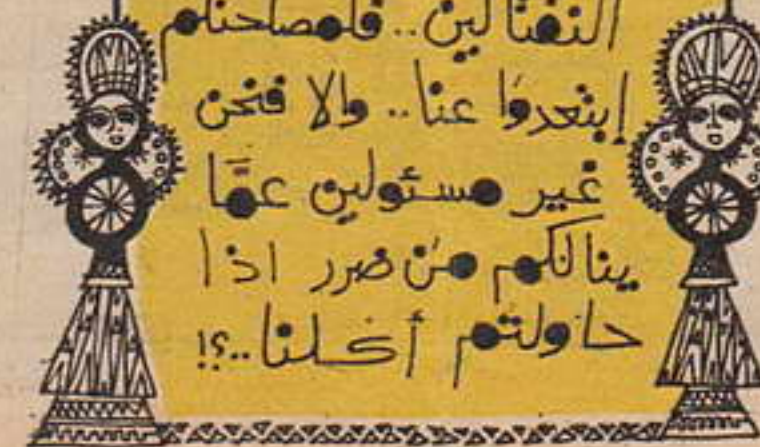 النفتالين.. فلمصلحتكم
إبتعدوا عنا.. والا فنحن
غير مسئولين عمَّا
ينالكم من ضرر اذا
حاولتم أكلنا..؟!